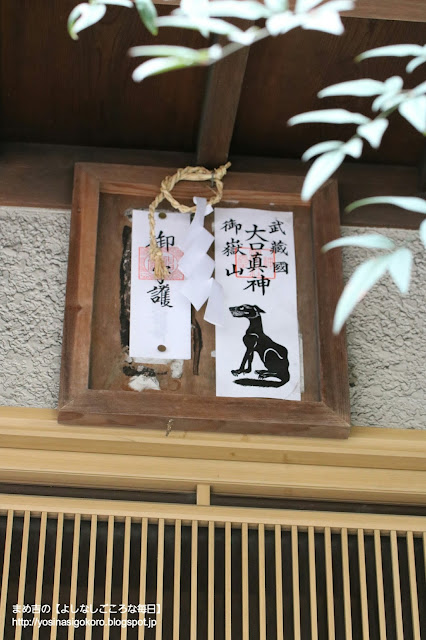 武蔵國
大口真神
御嶽山
御
護
まめ吉の【よしなしごころな毎日】
http://yosinasigokoro.blogspot.jp